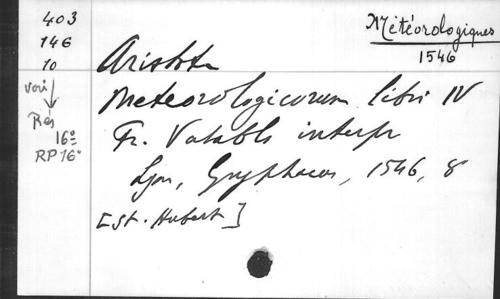 403
146
10
voir
Rés
16º
RP 16º
Météorologiques
1546
Aristote
Meteorologicorum libri IV
Fr. Vatablo interpr
Lyon, Gryphaeus, 1546, 8
[St. Hubert]